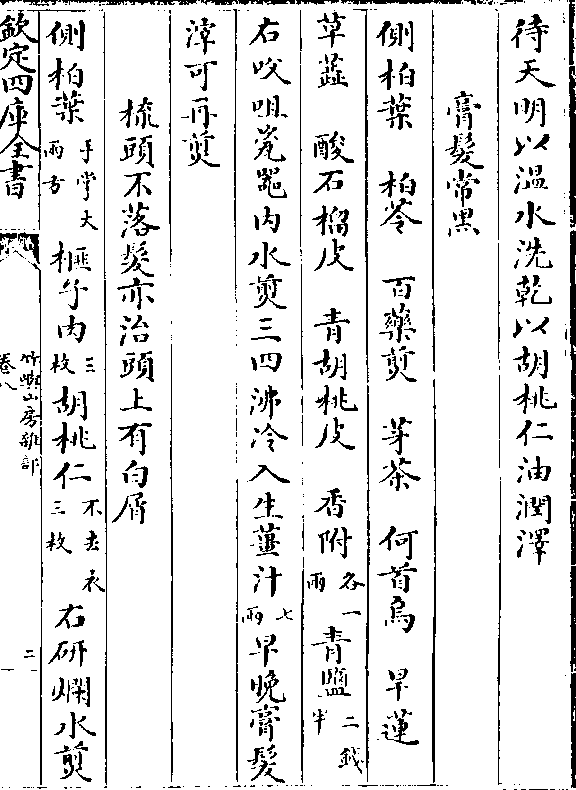 待天明以溫水洗乾以胡桃仁油潤澤
膏髮常黑
側柏葉 柏苓 百藥煎 芽茶 何首烏 旱蓮
草藍 酸石榴皮 青胡桃皮 香附各一兩 青鹽二錢半
右㕮咀瓷器内水煎三四沸冷入生薑汁七兩早晚膏髮
滓可再煎
梳頭不落髮亦治頭上有白屑
側柏葉手掌大兩方 榧子肉三枚 胡桃仁不去衣三枚 右研爛水煎
欽定四庫全書
竹嶼山房雜部
卷八
二